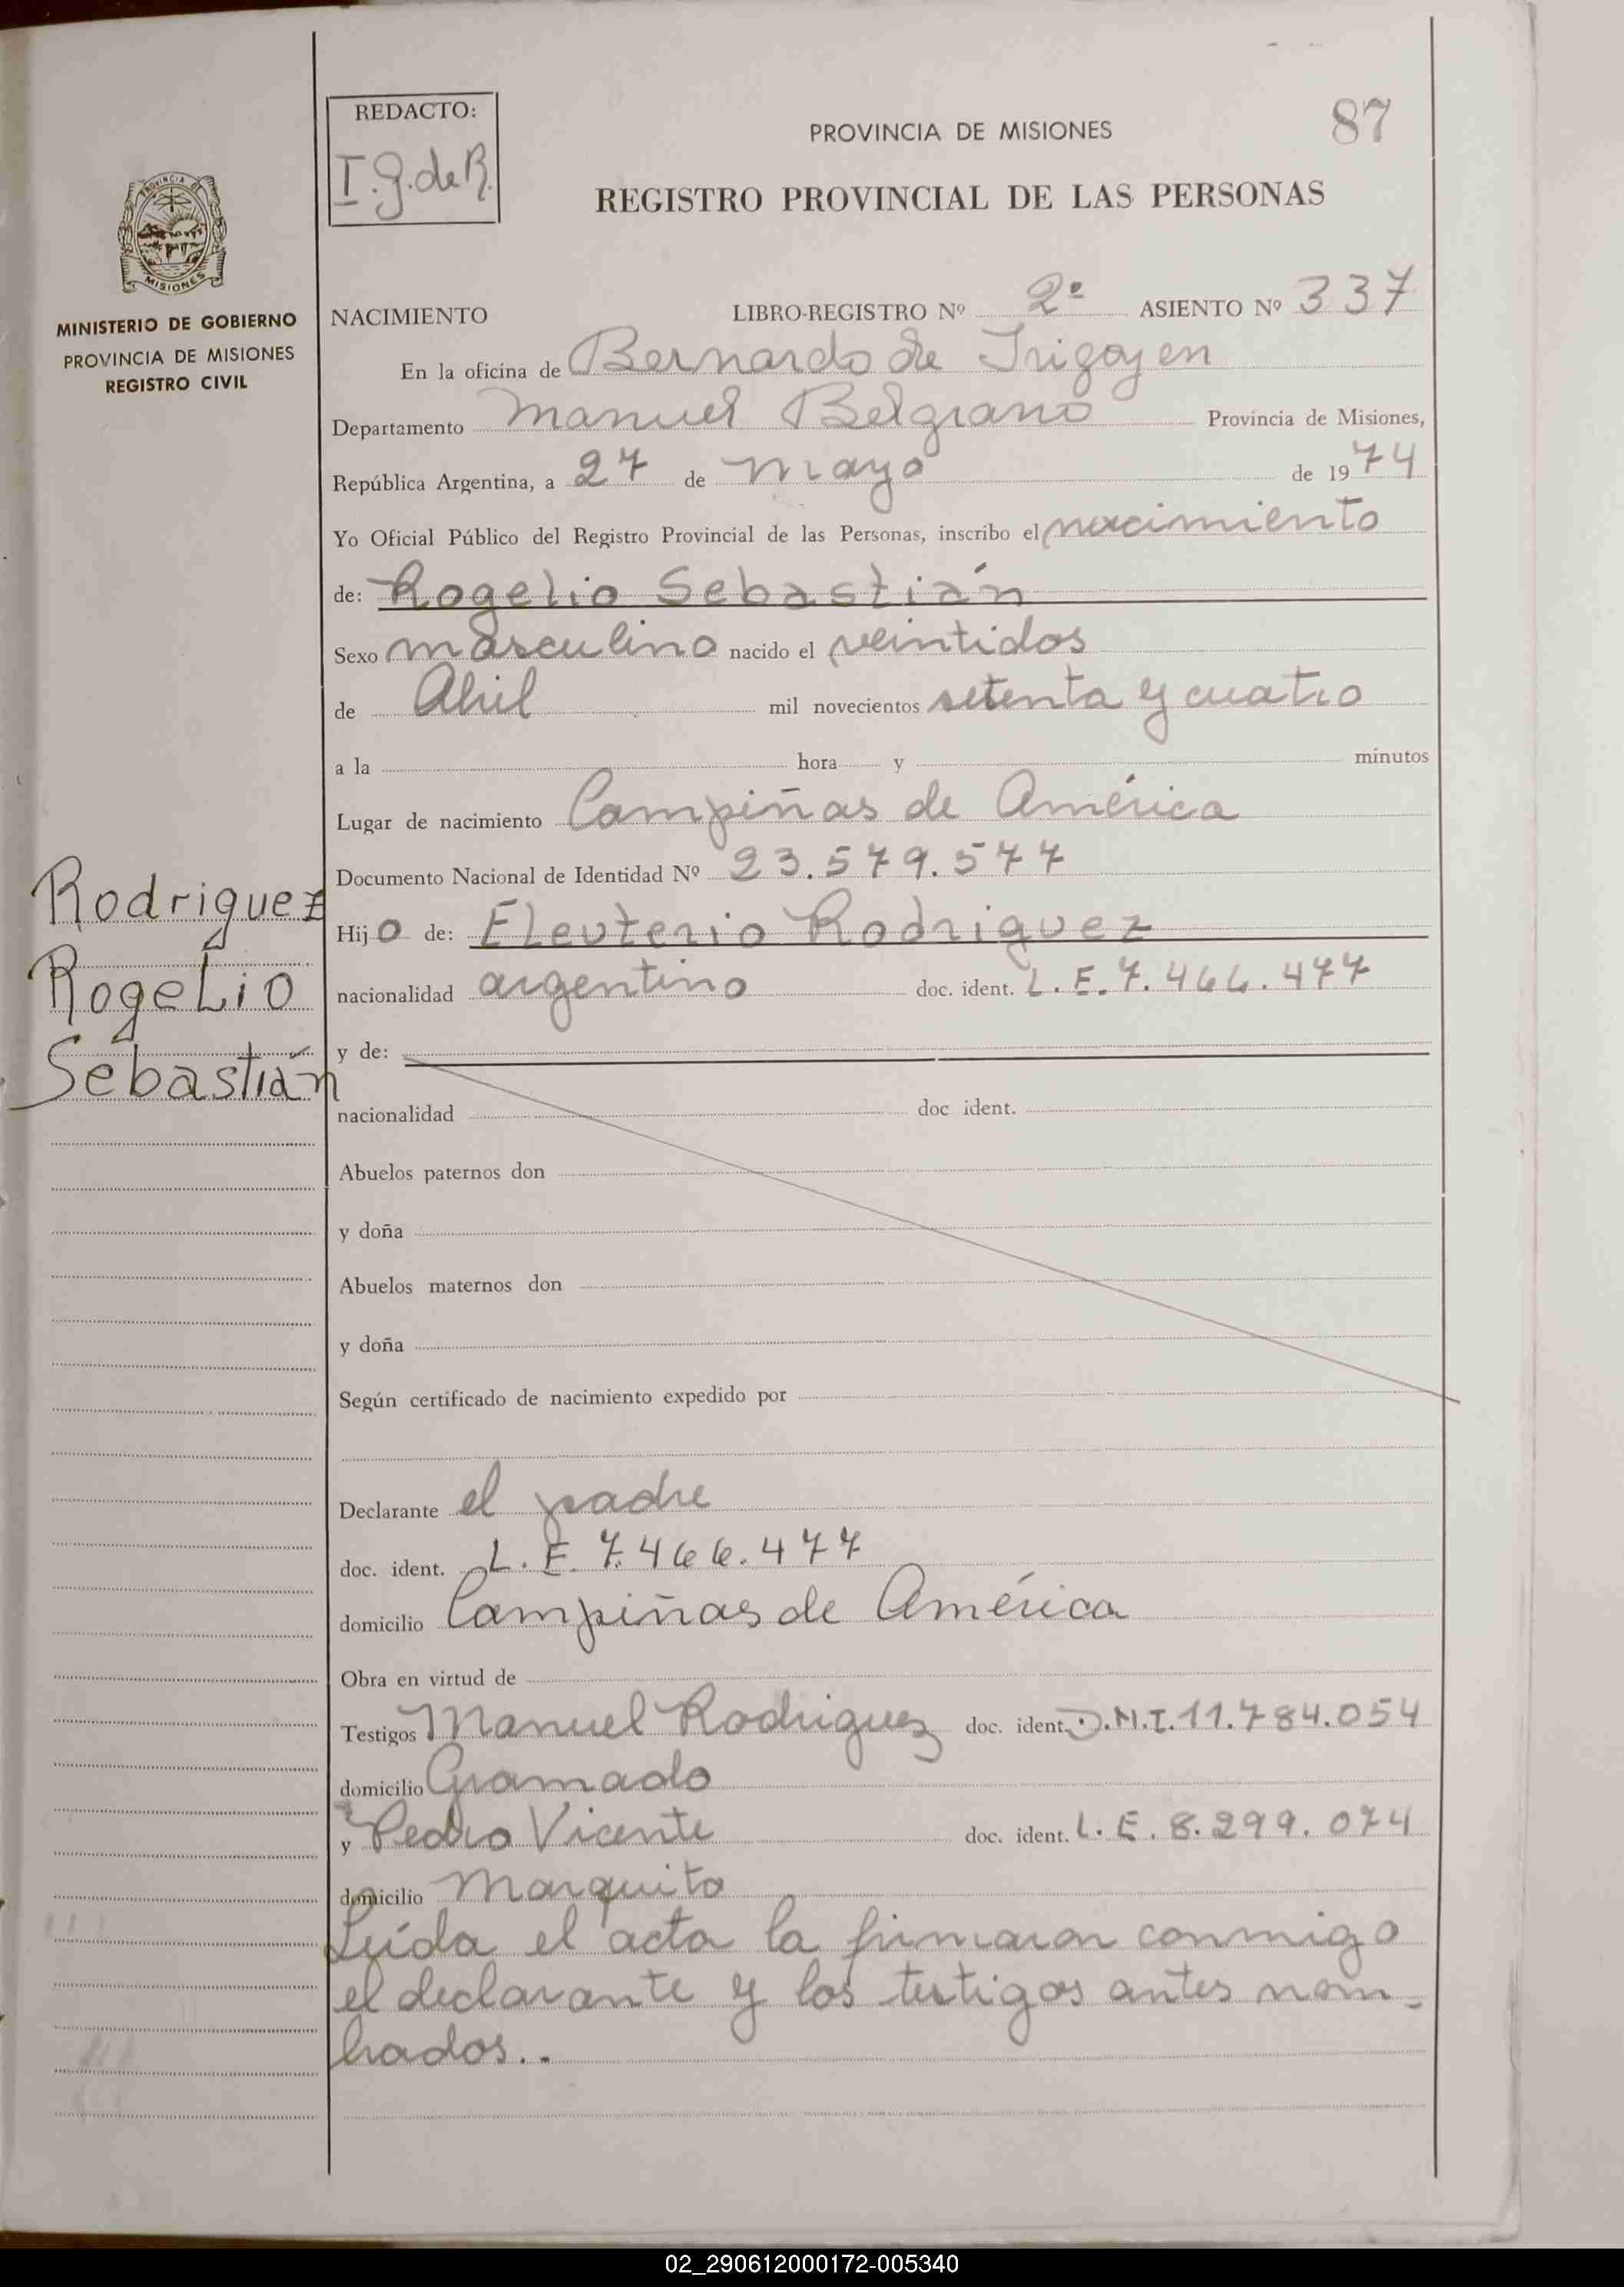 REDACTO:
I.G.deR.
PROVINCIA DE MISIONES
87
REGISTRO PROVINCIAL DE LAS PERSONAS
PROVINCIA DE
MISIONES
MINISTERIO DE GOBIERNO
PROVINCIA DE MISIONES
REGISTRO CIVIL
NACIMIENTO LIBRO-REGISTRO Nº 2º ASIENTO Nº 337
En la oficina de Bernardo de Irigoyen
Departamento Manuel Belgrano Provincia de Misiones,
República Argentina, a 27 de mayo de 1974
Yo Oficial Público del Registro Provincial de las Personas, inscribo el nacimiento
de: Rogelio Sebastián
Sexo masculino nacido el veintidos
de Abril mil novecientos setenta y cuatro
a la hora y minutos
Lugar de nacimiento Campiñas de América
Documento Nacional de Identidad Nº 23.579.577
Rodriguez
Rogelio
Sebastián
Hijo de: Eleuterio Rodriguez
nacionalidad argentino doc. ident. L.E.7.466.477
y de:
nacionalidad doc ident.
Abuelos paternos don
y doña
Abuelos maternos don
y doña
Según certificado de nacimiento expedido por
Declarante el padre
doc. ident. L.E. 7.466.477
domicilio Campiñas de América
Obra en virtud de
Testigos Manuel Rodriguez doc. ident. D.N.I.11.784.054
domicilio Gramado
y Pedro Vicente doc. ident. L.E.8.299.074
domicilio Marquito
Leída el acta la firmaron conmigo
el declarante y los testigos antes nom-
brados..
02_290612000172-005340